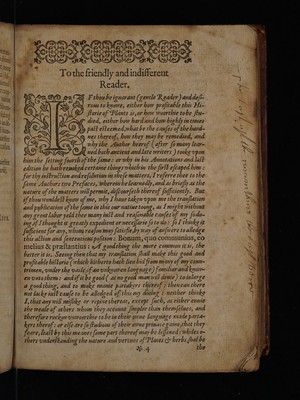 To the friendly and indifferent
Reader.
IF thou be ignorant (gentle Reader) and desi-
rous to knowe, either how profitable this Hi-
storie of Plants is, or how worthie to be stu-
died, either how hard and how highly in times
past esteemed, what be the causes of the hard-
nes thereof, how they may be remedied, and
why the Author hereof (after so many lear-
ned both ancient and late writers) tooke upon
him the setting foorth of the same: or why in his Annotations and last
edition he hath retracted certaine things which in the first escaped him:
for thy instruction and resolution in these matters, I referre thee to the
same Authors two Prefaces, wherein he learnedly, and as briefly as the
nature of the matter will permit, discourseth thereof sufficiently. But
if thou wouldest know of me, why I have taken upon me the translation
and publication of the same in this our native toong, as I might without
any great labor yeeld thee many just and reasonable causes of my so do-
ing: so I thinke it
sufficient for any, whom reason may satisfie, by way of answere to alledge
this action and sententious position: Bonum, quo communius, eo
melius & præstantius: A good thing the more common it is, the
better it is. Seeing then that my translation
profitable historie (which hitherto hath lien hid from many of my coun-
trimen, under the vaile of an unknowen language) familiar and knowne
unto them: and if to be good (as no good man will denie) to enlarge
a good thing, and to make manie partakers thereof: then can there
not lacke just cause to be alledged of this my doing: neither thinke
I, that any will mislike or repine thereat, except such, as either envie
the weale of others whom they account simpler than themselves, and
therefore
kers thereof: or els are so studious of their owne private gaine, that they
feare, least by this meanes some part thereof may be lessened: whiles o-
thers understanding the nature and vertues of Plants & herbs, shal be
& 4
the